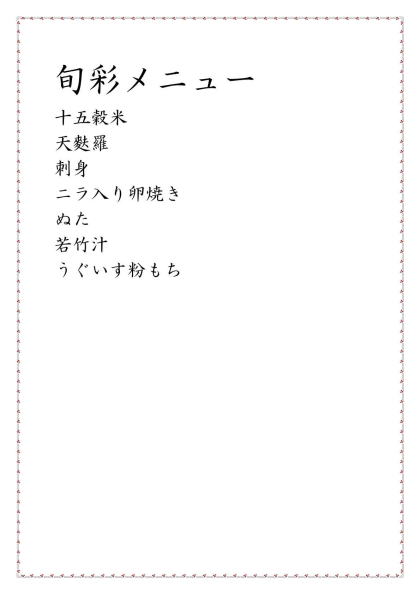 旬彩メニュー
十五穀米
天麩羅
刺身
ニラ入り卵焼き
ぬた
若竹汁
うぐいす粉もち